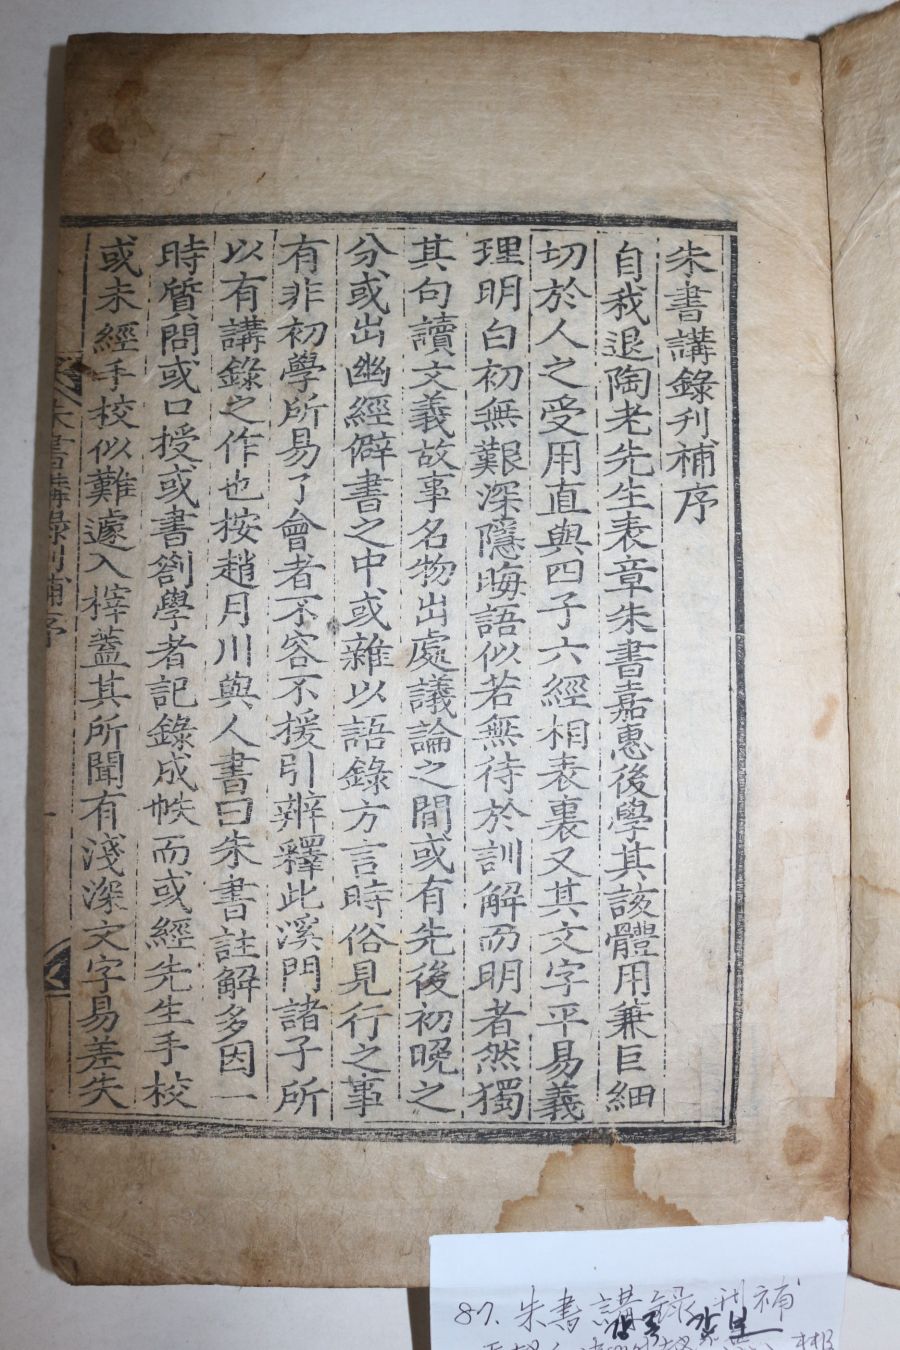 朱書講錄刊補序
自我退陶老先生表章朱書嘉惠後學其該體用兼巨細
切於人之受用直與四子六經相表裏又其文字平易義
理明白初無艱深隱晦語似若無待於訓解而明者然獨
其句讀文義故事名物出處議論之間或有先後初晚之
分或出幽經僻書之中或雜以語錄方言時俗見行之事
有非初學所易了會者不容不援引辨釋此溪門諸子所
以有講錄之作也按趙月川與人書曰朱書註解多因一
時質問或口授或書劄學者記錄成帙而或經先生手校
或未經手校似難遽入梓蓋其所聞有淺深文字易差失
朱書講錄刊補序
一
87. 朱書講錄刊補